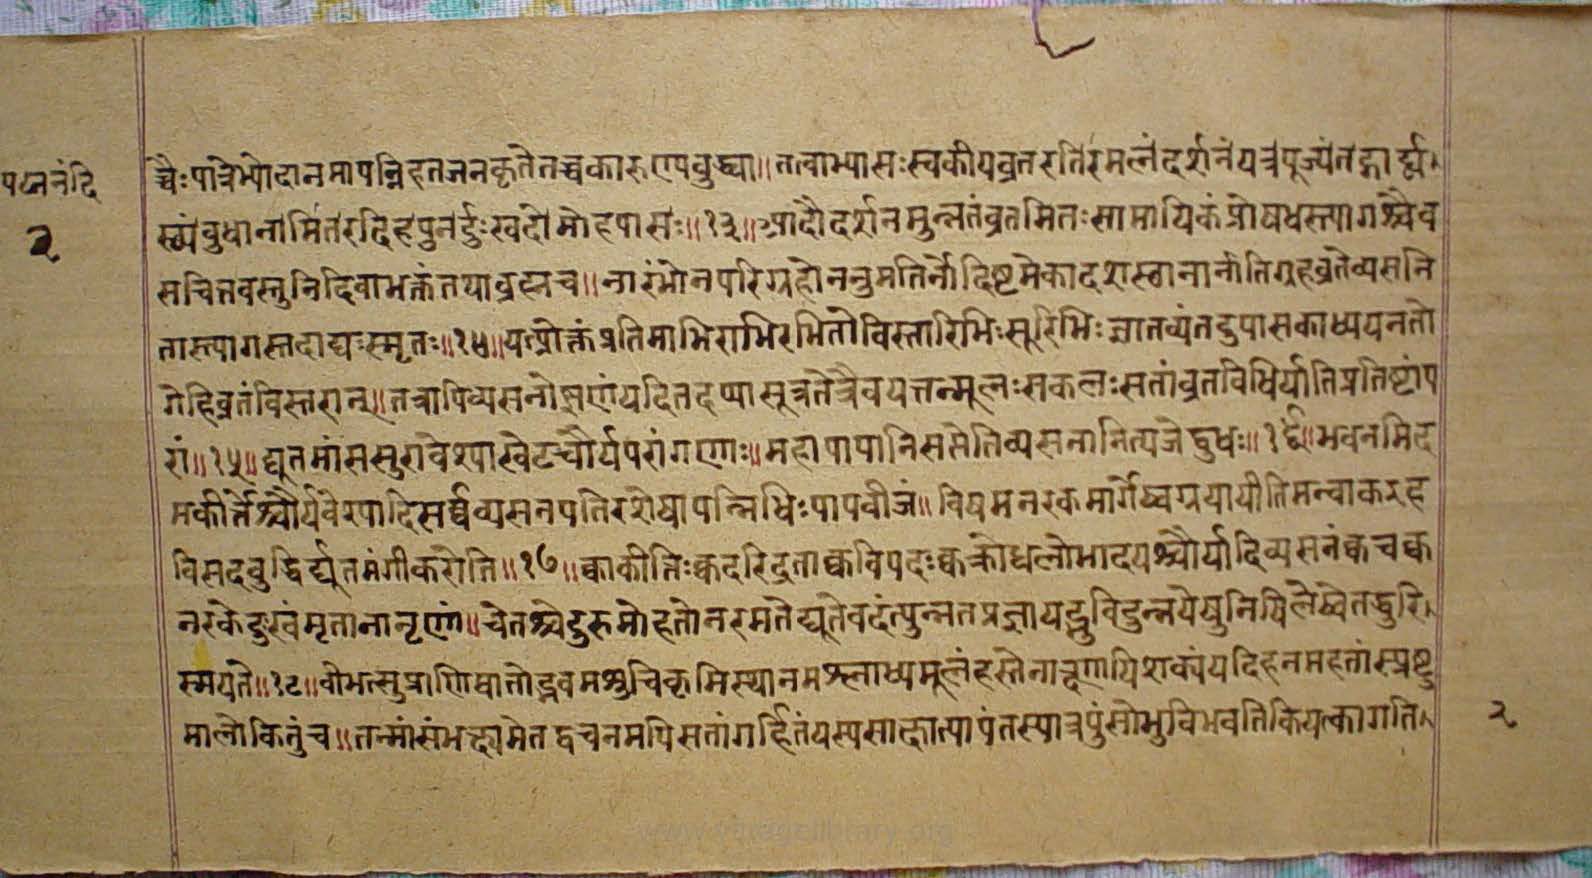 पद्मनंदि
२
च्चैः पात्रेभ्यो दानमापन्निहतजनकृते तच्च कारुण्यबुद्ध्या॥ तत्वाभ्यासः स्वकीयव्रतरतिरमलं दर्शनं यत्र पूज्यं तद्गार्ह
स्थ्यं बुधानामितरदिह पुनर्दुःखदो मोहपासः॥१३॥ आदौ दर्शनमुन्नतं व्रतमितः सामायिकं प्रोषधस्त्यागश्चैव
सचित्तवस्तुनि दिवाभक्तं तथा ब्रह्म च॥ नारंभो न परिग्रहो ननुमतिर्नोद्दिष्टमेकादशस्थानानीति गृहव्रते व्यसनि
तात्यागस्तदाद्यः स्मृतः॥१४॥ यत्प्रोक्तं प्रतिमाभिराभिरभितो विस्तारिभिः सूरिभिः ज्ञातव्यं तदुपासकाध्ययनतो
गेहिव्रतं विस्तरात्॥ तत्रापि व्यसनोझणं यदि तदप्यासूत्रतेत्रैव यत्तन्मूलः सकलः सतां व्रतविधिर्याति प्रतिष्टां प
रां॥१५॥ द्यूतमांससुरावेश्याखेटचौर्यपरांगणाः॥ महापापानि सप्तेति व्यसनानि त्यजेद्बुधः॥१६॥ भवनमिद
मकीर्त्तेश्चौर्यवेश्यादिसर्वव्यसनपतिरशेषापन्निधिः पापबीजं॥ विषमनरकमार्गेष्वग्रयायीति मत्वा क इह
विसदबुद्धिर्द्यूतमंगीकरोति॥१७॥ क्वाकीर्त्तिः क्व दरिद्रता क्व विपदः क्व क्रोधलोभादयश्चौर्यादिव्यसनं क्व च क्व
नरके दुःखं मृतानां नृणां॥ चेतश्चेद्गुरुमोहतो न रमते द्यूते वदंत्युन्नतप्रज्ञा यद्भुवि दुर्न्नयेषु निखिलेष्वेतद्धुरि
स्मर्यते॥१८॥ बीभत्सु प्राणिघातोद्भवमशुचि कृमिस्थानमश्लाध्यमूलं हस्तेनाक्ष्णापि शक्यं यदिह न महतां स्प्रष्टु
मालोकितुं च॥ तन्मांसं भक्ष्यमेतद्वचनमपि सतां गर्हितं यस्य साक्षात्पापं तस्यात्र पुंसो भुवि भवति कियत्का गति
२